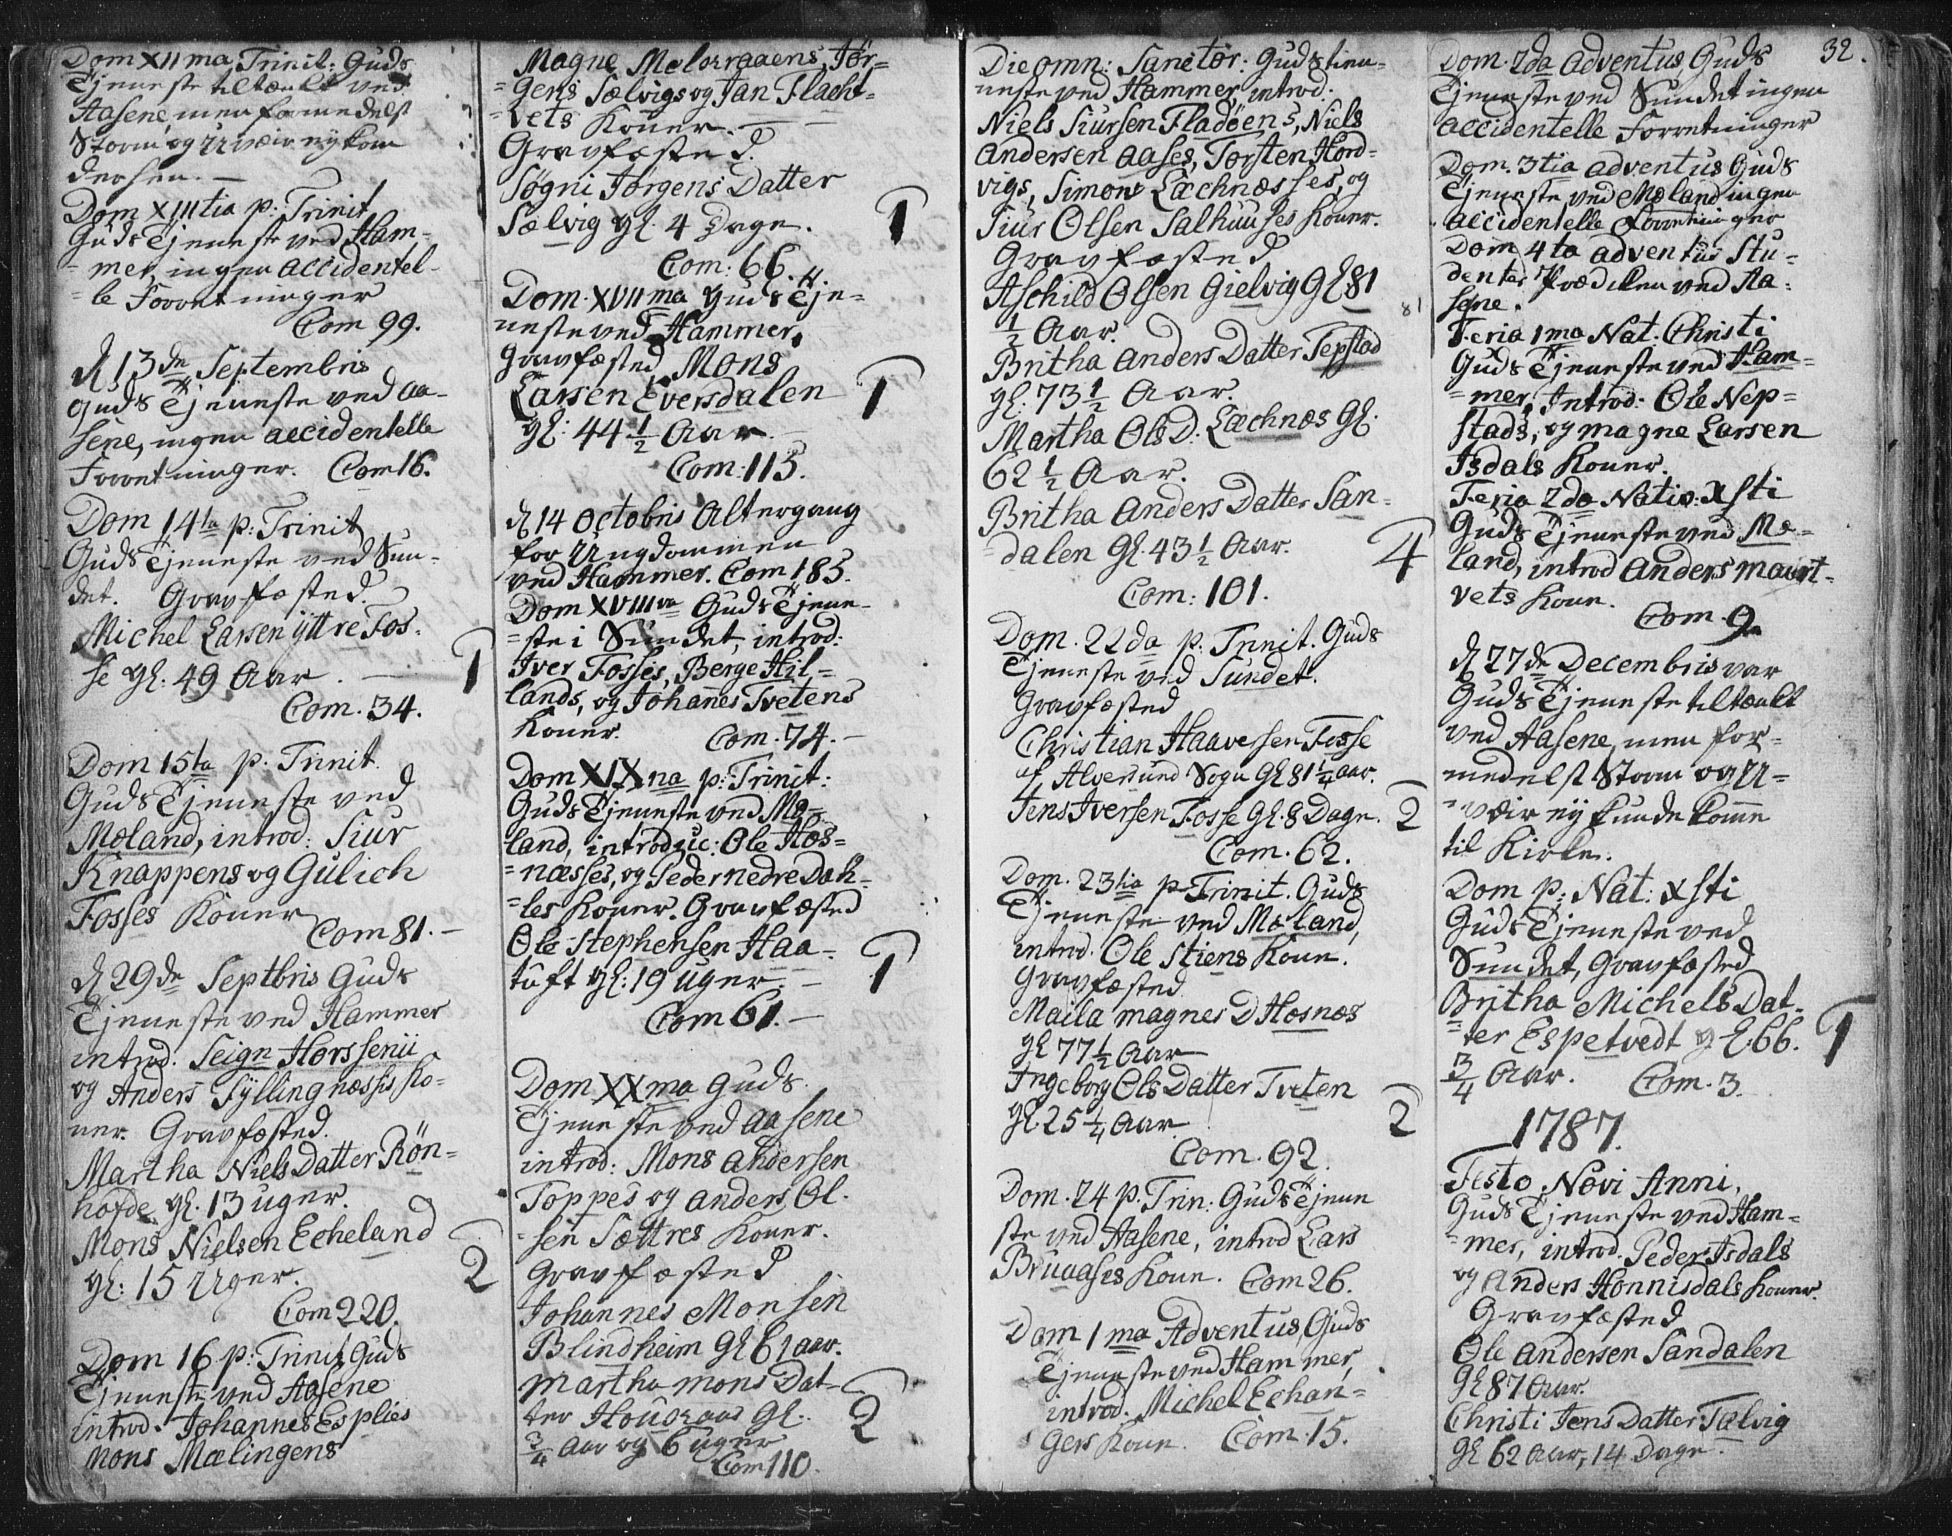 Dom XII ma Trinit: Guds
Tjeneste tiltænkt ved
Aasene, men formedelst
Storm og Uvæir ey kom
dersen. —
Dom XIII tia p: Trinit
Guds Tjeneste ved Ham-
mer, ingen accidentel-
le Forretninger
Com 99.
d 13de Septembris
Guds Tjeneste ved Aa-
sene, ingen accidentelle
Forretninger. Com 16.
Dom 14ta p: Trinit
Guds Tjeneste ved Sun-
det. Gravfæsted
Michel Larsen yttre Fos-
se gl: 49 Aar. — 1
Com. 34.
Dom 15ta p: Trinit.
Guds Tjeneste ved
Mæland, introd: Siur
Knappens og Gulich
Fosses Koner
Com 81. —
d 29de Septbris Guds
Tjeneste ved Hammer
introd. Seign Horssenii
og Anders Fyllingnæsses Ko-
ner. Gravfæsted.
Martha Niels Datter Rön-
hofde gl. 13 uger.
Mons Nielsen Echeland
gl: 15 Uger. 2
Com 220.
Dom 16 p: Trinit Guds
Tjeneste ved Aasene
introd. Johannes Esplies
Mons Mælingens
Magne Molvraaens, Jør-
gens Sælvigs og Jan Flacht-
vets Koner. —
Gravfæsted.
Søgni Jørgens Datter
Sælvig gl. 4 Dage. 1
Com: 66.
Dom. XVII ma Guds Tje-
neste ved Hammer,
Gravfæsted Mons
Larsen Eversdalen 1
gl: 44 1/2 Aar —
Com. 113.
d 14 Octobris Altergang
for Ungdommen
ved Hammer. Com 185.
Dom XVIII va Guds Tjene-
ste i Sundet, introd:
Iver Fosses, Berge Hil-
lands, og Johannes Tvetens
Koner. Com. 74. —
Dom XIX na p: Trinit:
Guds Tjeneste ved Mæ-
land, introduc: Ole Hos-
næsses, og Peder nedre Dah-
les Koner. Gravfæsted
Ole Stephensen Haa-
tuft gl: 19 uger. — 1
Com 61. —
Dom XX ma Guds
Tjeneste ved Aasene
introd: Mons Andersen
Toppes og Anders Ol-
sen Sættres Koner.
Gravfæsted
Johannes Monsen
Blindheim gl 61 aar.
Martha Mons Dat-
ter Hougaas gl. 2
3/4 Aar og 6 uger
Com 110.
Die omn: Sanctor: Guds tien-
neste ved Hammer, introd:
Niels Siursen Fladöens, Niels
Andersen Aases, Torsten Hord-
vigs, Simon Læchnæsses, og
Siur Olsen Salhuuses Koner.
Gravfæsted
Aschild Olsen Gielvig Gl 81
1/2 Aar. 81
Britha Anders Datter Tepstad
gl. 73 1/2 Aar.
Martha Ols D: Læchnæs Gl.
62 1/2 Aar.
Britha Anders Datter San-
dalen Gl. 43 1/2 Aar. 4
Com: 101.
Dom. 22da p: Trinit. Guds
Tjeneste ved Sundet.
Gravfæsted
Christian Haaversen Fosse
af Alversund Sogn Gl 81 1/4 aar.
Jens Iversen Fosse Gl. 8 Dage. 2
Com. 62.
Dom. 23tia p. Trinit. Guds
Tjeneste ved Mæland,
introd. Ole Stiens Kone.
Gravfæsted
Maila Magnes D Hosnæs
gl 77 1/2 Aar
Ingeborg Ols Datter Tveten
gl. 25 1/4 Aar 2
Com. 92.
Dom. 24 p. Trin: Guds Tjene
ste ved Aasene, introd Lars
Bruaases Kone. Com 26.
Dom 1 ma Adventus, Guds
Tjeneste ved Hammer,
introd. Michel Echan-
gers Kone. Com. 15.
32.
Dom. 2da Adventus Guds
Tjeneste ved Sundet ingen
accidentelle Forretninger
Dom. 3tia adventus Guds
Tjeneste ved Mæland ingen
accidentelle Forretninger
Dom 4ta adventus Stu-
dentes Prædiken ved Aa-
sene.
Feria 1ma Nat. Christi
Guds Tjeneste ved Ham-
mer, Introd. Ole Nep-
stads, og Magne Larsen
Isdals Koner.
Feria 2da Nativ. Xsti
Guds Tjeneste ved Mæ-
land, introd Anders Maurt-
vets Kone.
Com. 9.
d 27de Decembris var
Guds Tjeneste tiltænkt
ved Aasene, men for-
medelst Storm og U-
væir ey kunde komme
til Kirke.
Dom p: Nat: Xsti
Guds Tjeneste ved
Sundet, Gravfæsted
Britha Michels Dat-
ter Espetvedt gl. 66. 1
3/4 Aar. Com. 3.
1787.
Festo Novi Anni,
Guds Tjeneste ved Ham-
mer, introd. Peder Isdals
og Anders Honnisdals Koner.
Gravfæsted
Ole Andersen Sandalen
gl 87 Aar.
Christi Jens Datter Sælvig
gl 62 Aar, 14 Dage.